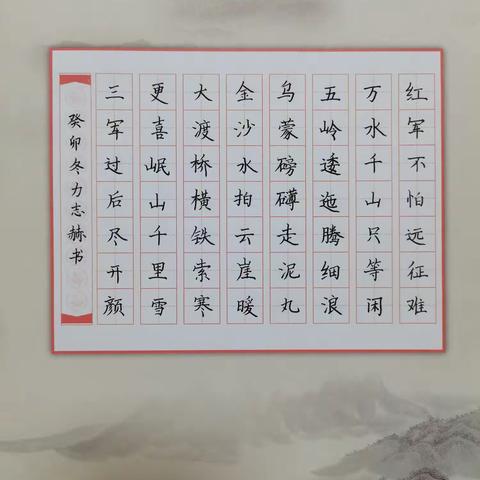 红军不怕远征难
万水千山只等闲
五岭逶迤腾细浪
乌蒙磅礴走泥丸
金沙水拍云崖暖
大渡桥横铁索寒
更喜岷山千里雪
三军过后尽开颜
癸卯冬力志赫书